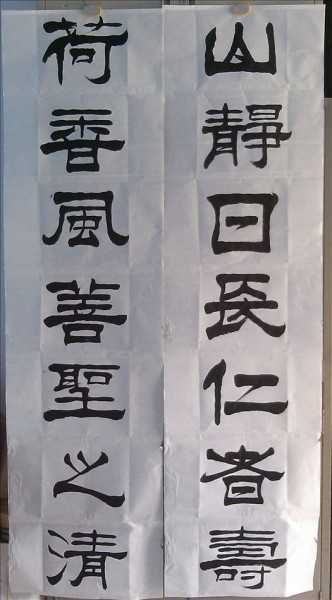 山靜日長仁者壽
荷香風善聖之清